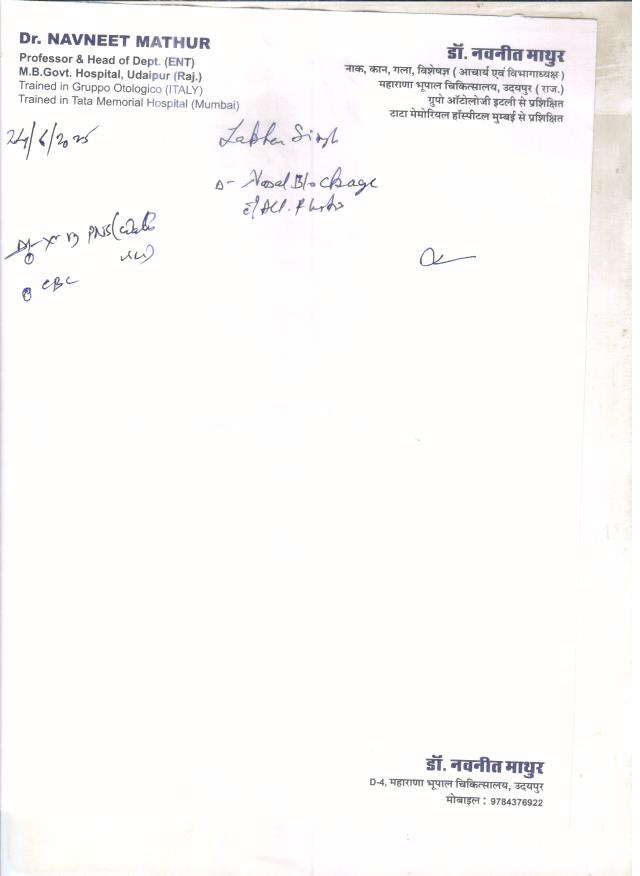 Dr. NAVNEET MATHUR
Professor & Head of Dept. (ENT)
M.B.Govt. Hospital, Udaipur (Raj.)
Trained in Gruppo Otologico (ITALY)
Trained in Tata Memorial Hospital (Mumbai)
डॉ. नवनीत माथुर
नाक, कान, गला, विशेषज्ञ ( आचार्य एवं विभागाध्यक्ष )
महाराणा भूपाल चिकित्सालय, उदयपुर ( राज.)
ग्रुपो ऑटोलोजी इटली से प्रशिक्षित
टाटा मेमोरियल हॉस्पीटल मुम्बई से प्रशिक्षित
24/6/2025
Singh
Nasal Blockage
PNS
CBC
डॉ. नवनीत माथुर
D-4, महाराणा भूपाल चिकित्सालय, उदयपुर
मोबाइल : 9784376922